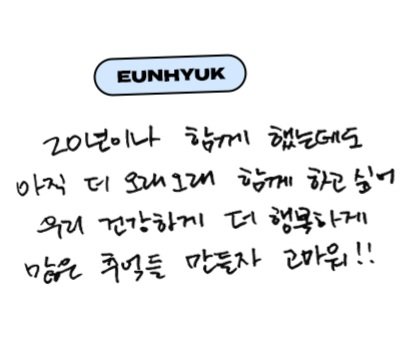 EUNHYUK
20년이나 함께 했는데도
아직 더 오래오래 함께 하고 싶어
우리 건강하게 더 행복하게
많은 추억들 만들자 고마워!!